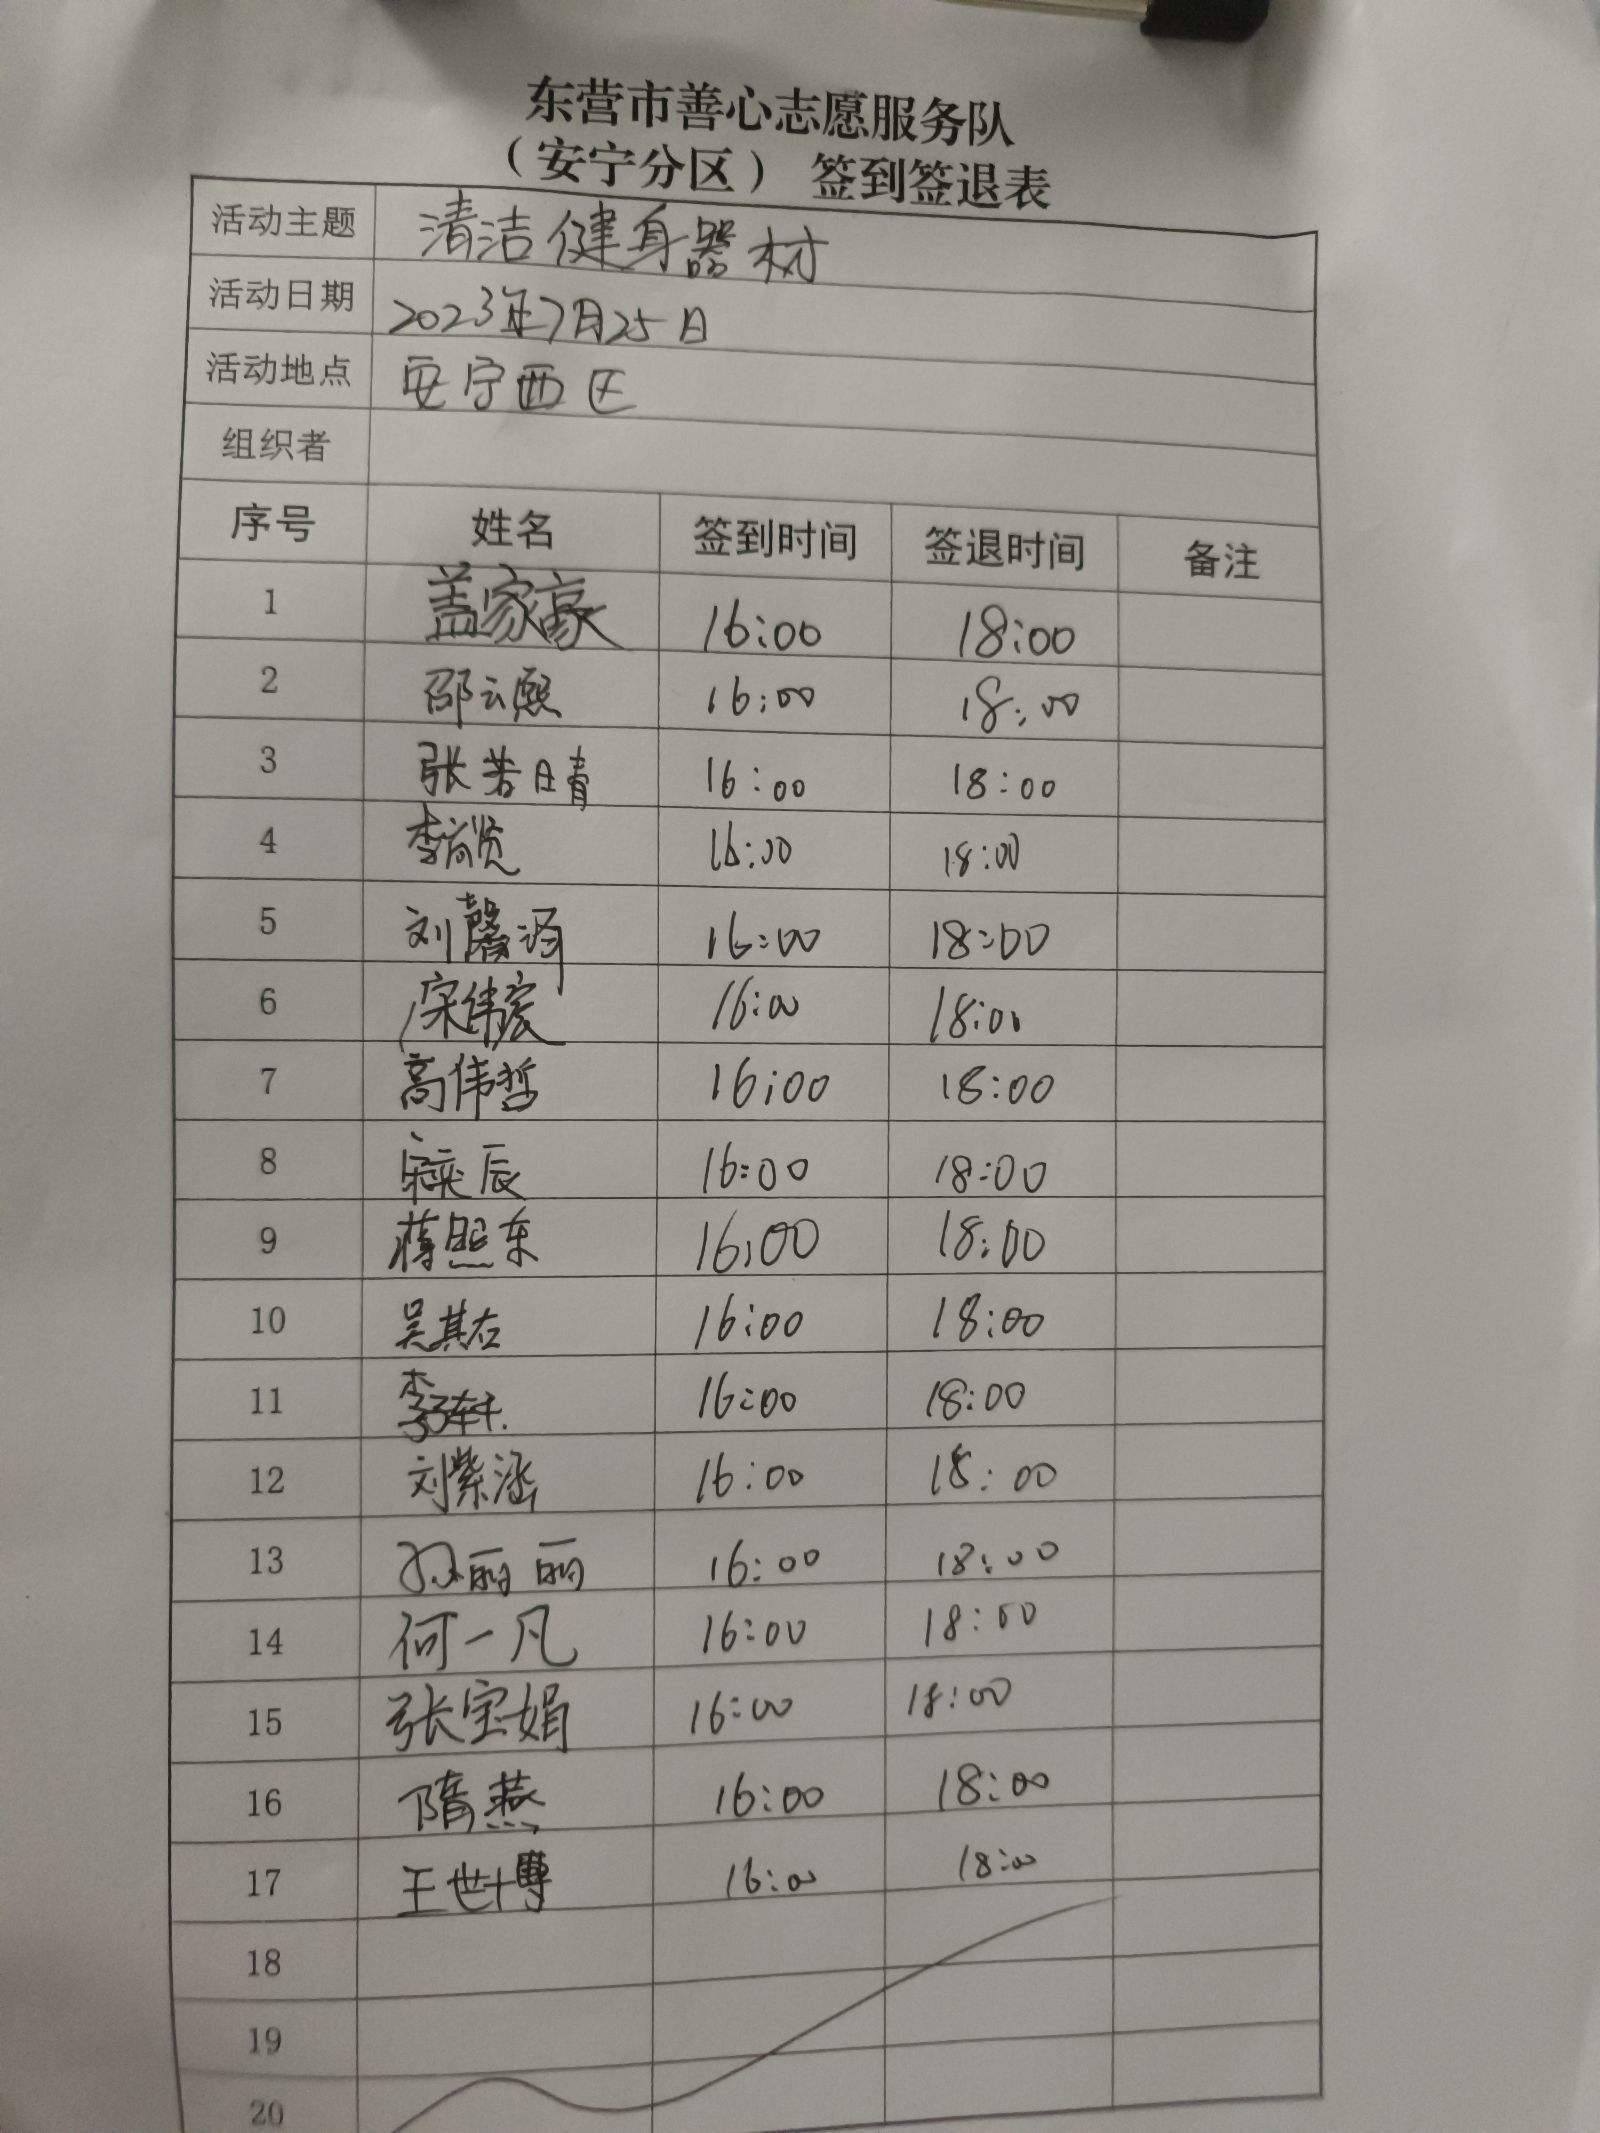 东营市善心志愿服务队
（安宁分区） 签到签退表
活动主题 清洁健身器材
活动日期 2023年7月25日
活动地点 安宁西区
组织者
序号 姓名 签到时间 签退时间 备注
1 盖家豪 16:00 18:00
2 邵云熙 16:00 18:00
3 张若晴 16:00 18:00
4 李尚贤 16:00 18:00
5 刘馨 16:00 18:00
6 宋伟宸 16:00 18:00
7 高伟哲 16:00 18:00
8 宋奕辰 16:00 18:00
9 蒋熙东 16:00 18:00
10 吴其右 16:00 18:00
11 李子轩 16:00 18:00
12 刘紫涵 16:00 18:00
13 孙丽丽 16:00 18:00
14 何一凡 16:00 18:00
15 张宝娟 16:00 18:00
16 隋燕 16:00 18:00
17 王世博 16:00 18:00
18
19
20